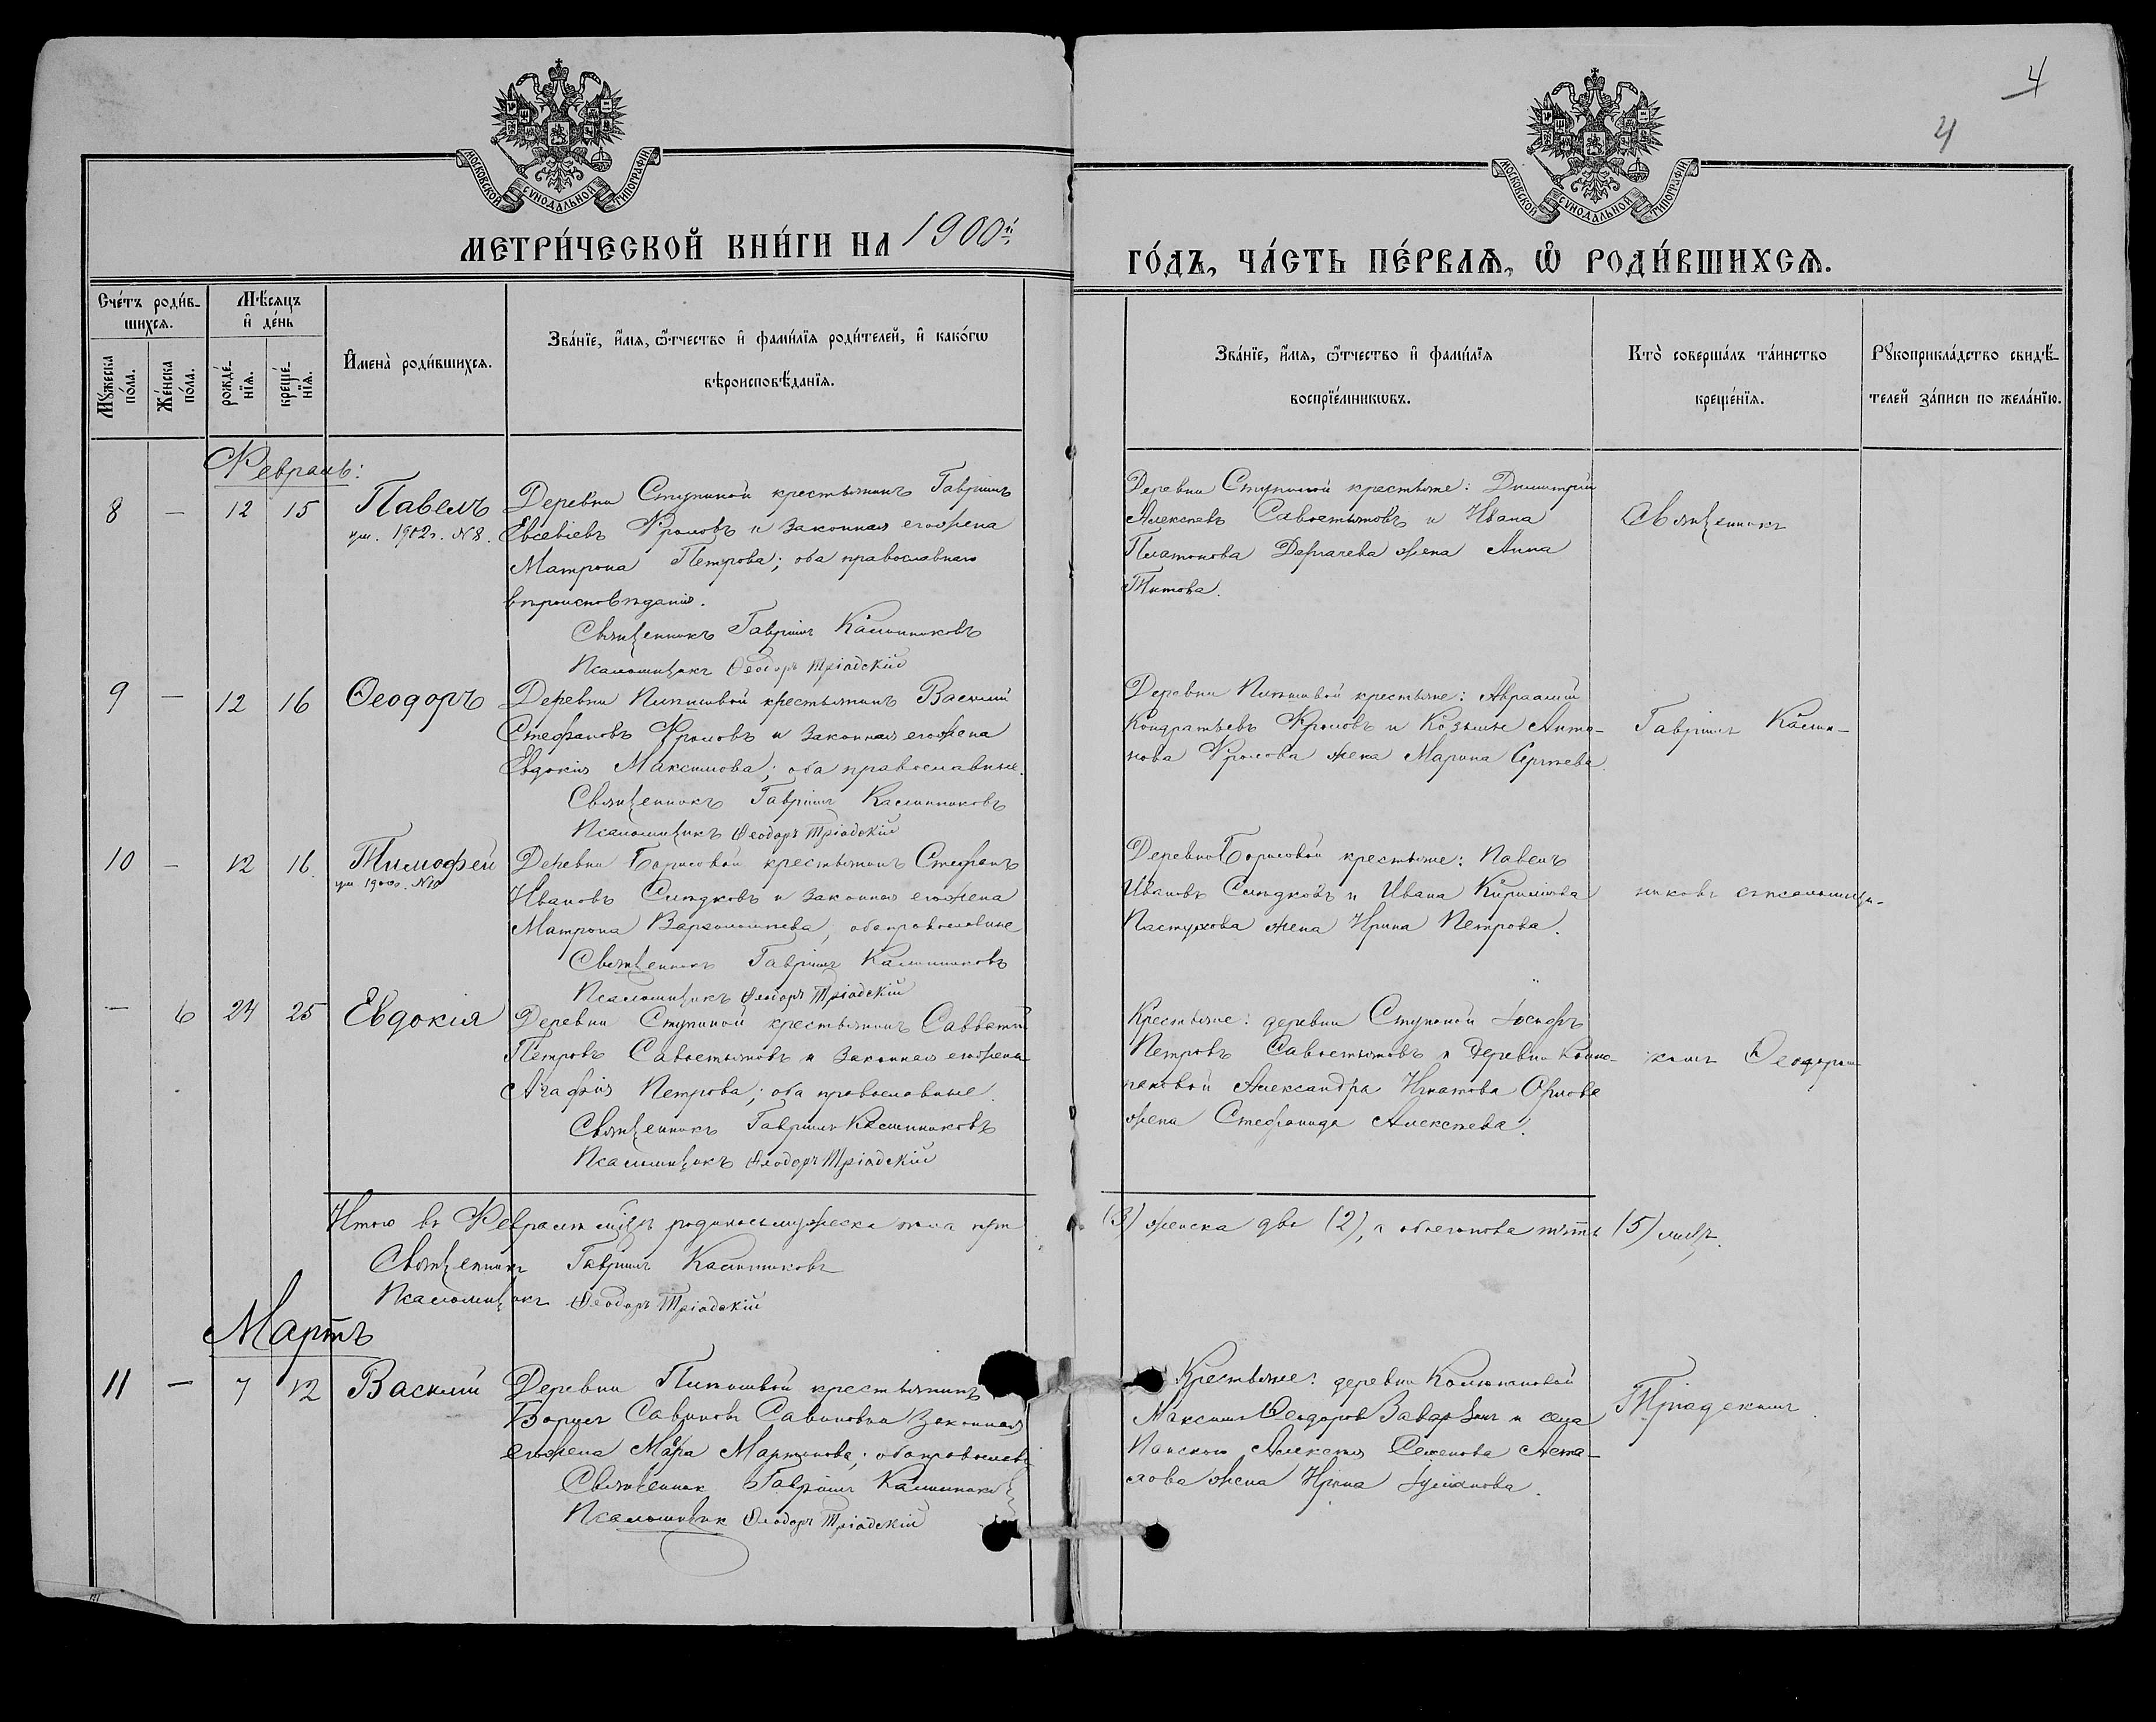 4
4
МОСКОВСКОЙ СѴНОДАЛЬНОЙ ТИПОГРАФІИ
МОСКОВСКОЙ СѴНОДАЛЬНОЙ ТИПОГРАФІИ
МЕТРИ́ЧЕСКОЙ КНИ́ГИ НА 1900й
ГО́ДЪ, ЧА́СТЬ ПЕ́РВАѦ, Ѡ РОДИ́ВШИХСѦ.
Сче́тъ роди́в-
шихсѧ.
Мѣ́сяцъ
и҆ де́нь
Мꙋ́жеска
по́ла.
Же́нска
по́ла.
рожде́-
нїѧ.
креще́-
нїѧ.
И҆мена̀ роди́вшихсѧ.
Зва́нїе, и҆́мѧ, ѻ҆́тчество и҆ фами́лїѧ роди́телей, и҆ како́гѡ
вѣроисповѣ́данїѧ.
Зва́нїе, и҆́мѧ, ѻ҆́тчество и҆ фами́лїѧ
воспрїе́мникѡвъ.
Кто̀ соверша́лъ та́инство
креще́нїѧ.
Рꙋкоприкла́дство свидѣ́-
телей за́писи по жела́нїю.
Февраль:
8 — 12 15 Павелъ
ум. 1902г. №8.
Деревни Ступиной крестьянинъ Гавріилъ
Евсевіевъ Фроловъ и законная его жена
Матрона Петрова; оба православнаго
вѣроисповѣданія.
Священникъ Гавріилъ Калинниковъ
Псаломщикъ Ѳеодоръ Тріадскій
Деревни Ступиной крестьяне: Димитрій
Алексѣевъ Савостьяновъ и Ивана
Платонова Дергачева жена Анна
Титова.
Священникъ
9 — 12 16 Ѳеодоръ
Деревни крестьянинъ Василій
Стефановъ Фроловъ и законная его жена
Евдокія Максимова; оба православные.
Священникъ Гавріилъ Калинниковъ
Псаломщикъ Ѳеодоръ Тріадскій
Деревни крестьяне: Авраамій
Кондратьевъ Фроловъ и Козьмы Анто-
нова Фролова жена Марина Сергѣева.
Гавріилъ Калин-
10 — 12 16. Тимофей
ум 1900г. №10
Деревни Борисовой крестьянинъ Стефанъ
Ивановъ Слѣдковъ и законная его жена
Матрона Варфоломѣева, оба православные
Священникъ Гавріилъ Калинниковъ
Псаломщикъ Ѳеодоръ Тріадскій
Деревни Борисовой крестьяне: Павелъ
Ивановъ Слѣдковъ и Ивана Кириллова
Пастухова жена Ирина Петрова.
никовъ съ псаломщи-
— 6 24 25 Евдокія
Деревни Ступиной крестьянинъ Савватій
Петровъ Савостьяновъ и законная его жена
Агафія Петрова; оба православные.
Священникъ Гавріилъ Калинниковъ
Псаломщикъ Ѳеодоръ Тріадскій
Крестьяне: деревни Ступиной Іосифъ
Петровъ Савостьяновъ и деревни
Александра Игнатова Орлова
жена Стефанида Алексѣева.
комъ Ѳеодоромъ
Итого въ Февралѣ мѣсяцѣ родилось мужеска пола три
(3) женска два (2), а обоего пола пять (5) лицъ.
Священникъ Гавріилъ Калинниковъ
Псаломщикъ Ѳеодоръ Тріадскій
Мартъ
11 — 7 12 Василий
Деревни крестьянинъ
Савиновъ и законная
его жена Мартинова; оба православн
Священник Гавріилъ Калинников
Псаломщик Ѳеодоръ Тріадскій
Крестьяне: деревни
Максимъ Ѳеодоров и села
Алексѣя Семенова Аста-
хова жена Ирина
Тріадскимъ.